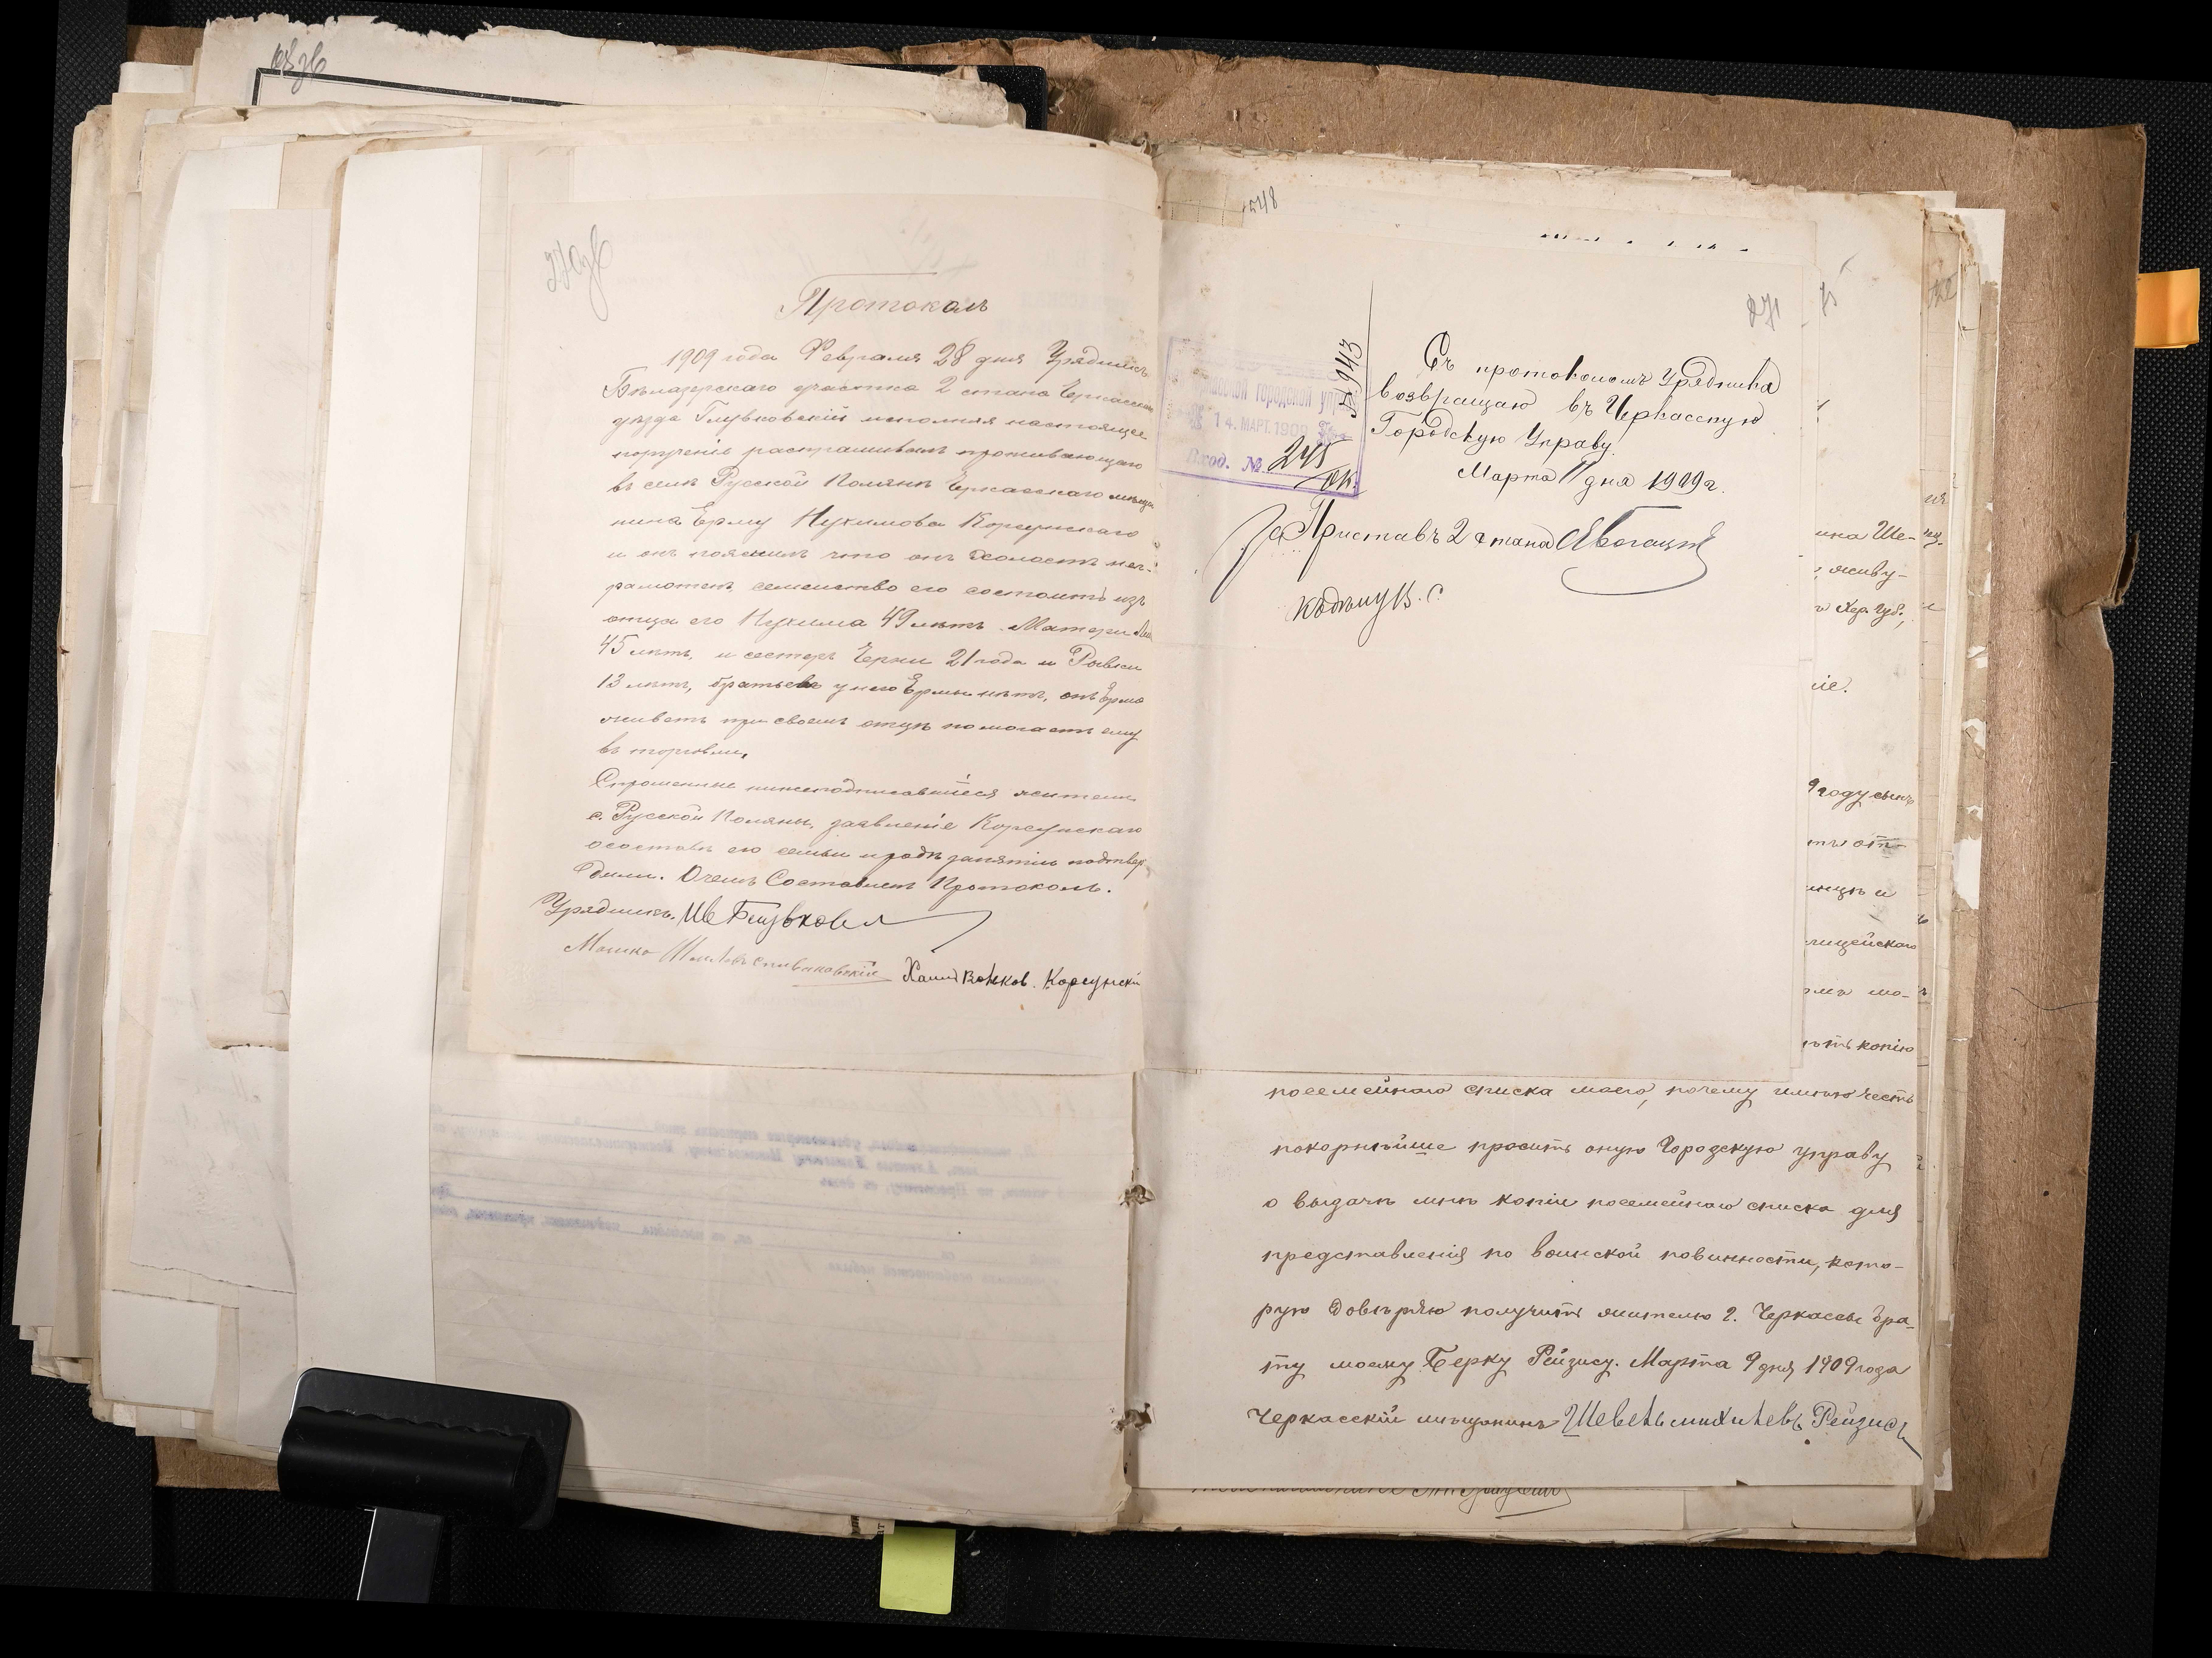 270 об
Протоколъ
1909 года Февраля 28 дня Урядникъ
Бѣлазерскаго участка 2 стана Черкасскаго
уѣзда Глувковскій исполняя настоящее
порученіе распрашивалъ проживающаго
въ селѣ Русской Полянѣ Черкасскаго мѣща
нина Ерму Нухимова Корсунскаго
и онъ пояснилъ что онъ холостъ нег-
рамотенъ, семейство его состоитъ изъ
отца его Нухима 49 лѣтъ Матери
45 лѣтъ, и сестеръ Черни 21 года и Ривки
13 лѣтъ, братьевъ у него Ермы нѣтъ, онъ Ерма
живетъ при своемъ отцѣ помогаетъ ему
въ торговли,
Спрошенные нижеподписавшіеся жители
с. Русской Поляны, заявленіе Корсунскаго
осоставѣ его семьи и родѣ занятіи подтвер
дили. Очемъ Составленъ Протоколъ.
Урядникъ.
Мошко Корсунскій
548
271
№ 943
городской управ
14. МАРТ. 1909
Вход. № 245
Съ протоколомъ Урядника
возвращаю въ Черкасскую
Городскую Управу.
Марта 11 дня 1909 г.
За Приставъ 2 стана
къ дѣлу В. С.
ина Ше-
живу-
Хер. губ.,
ніе.
9 году сынъ
отцѣ и
лицейскаго
мо-
копію
посемейнаго списка моего, почему имѣю честь
покорнѣйше просить оную Городскую управу
о выдачѣ мнѣ копіи посемейнаго списка для
представленія по воинской повинности, кото-
рую довѣряю получить жителю г. Черкассы бра-
ту моему Берку Рейзису. Марта 9 дня 1909 года
Черкасскій мѣщанинъ Шевель Михилевъ Рейзисъ